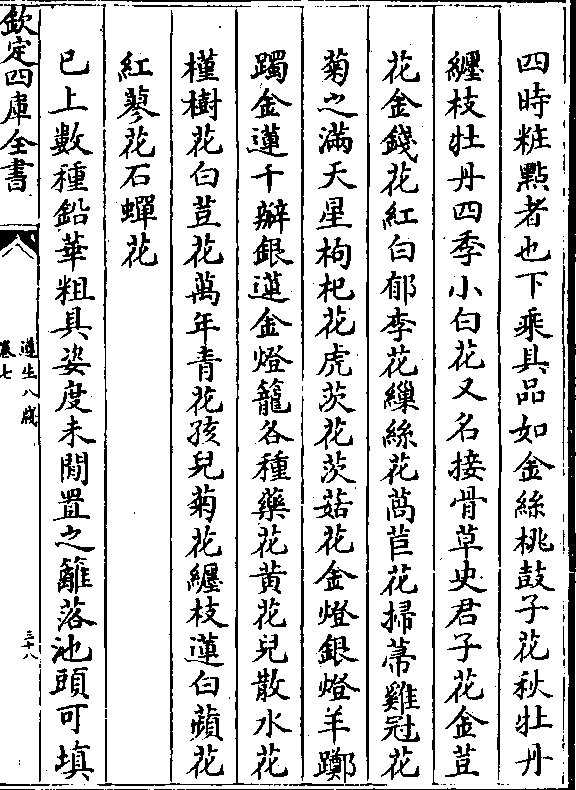 四時粧點者也下乘具品如金絲桃鼓子花秋牡丹
纒枝牡丹四季小白花又名接骨草史君子花金荳
花金錢花紅白郁李花繅絲花萵苣花掃蒂雞冠花
菊之滿天星枸杞花虎茨花茨菇花金燈銀燈羊躑
躅金蓮千瓣銀蓮金燈籠各種藥花黄花兒散水花
槿樹花白荳花萬年青花孩兒菊花纒枝蓮白蘋花
紅蓼花石蟬花
已上數種鉛華粗具姿度未閒置之籬落池頭可填
欽定四庫全書
遵生八牋
卷七
三十八